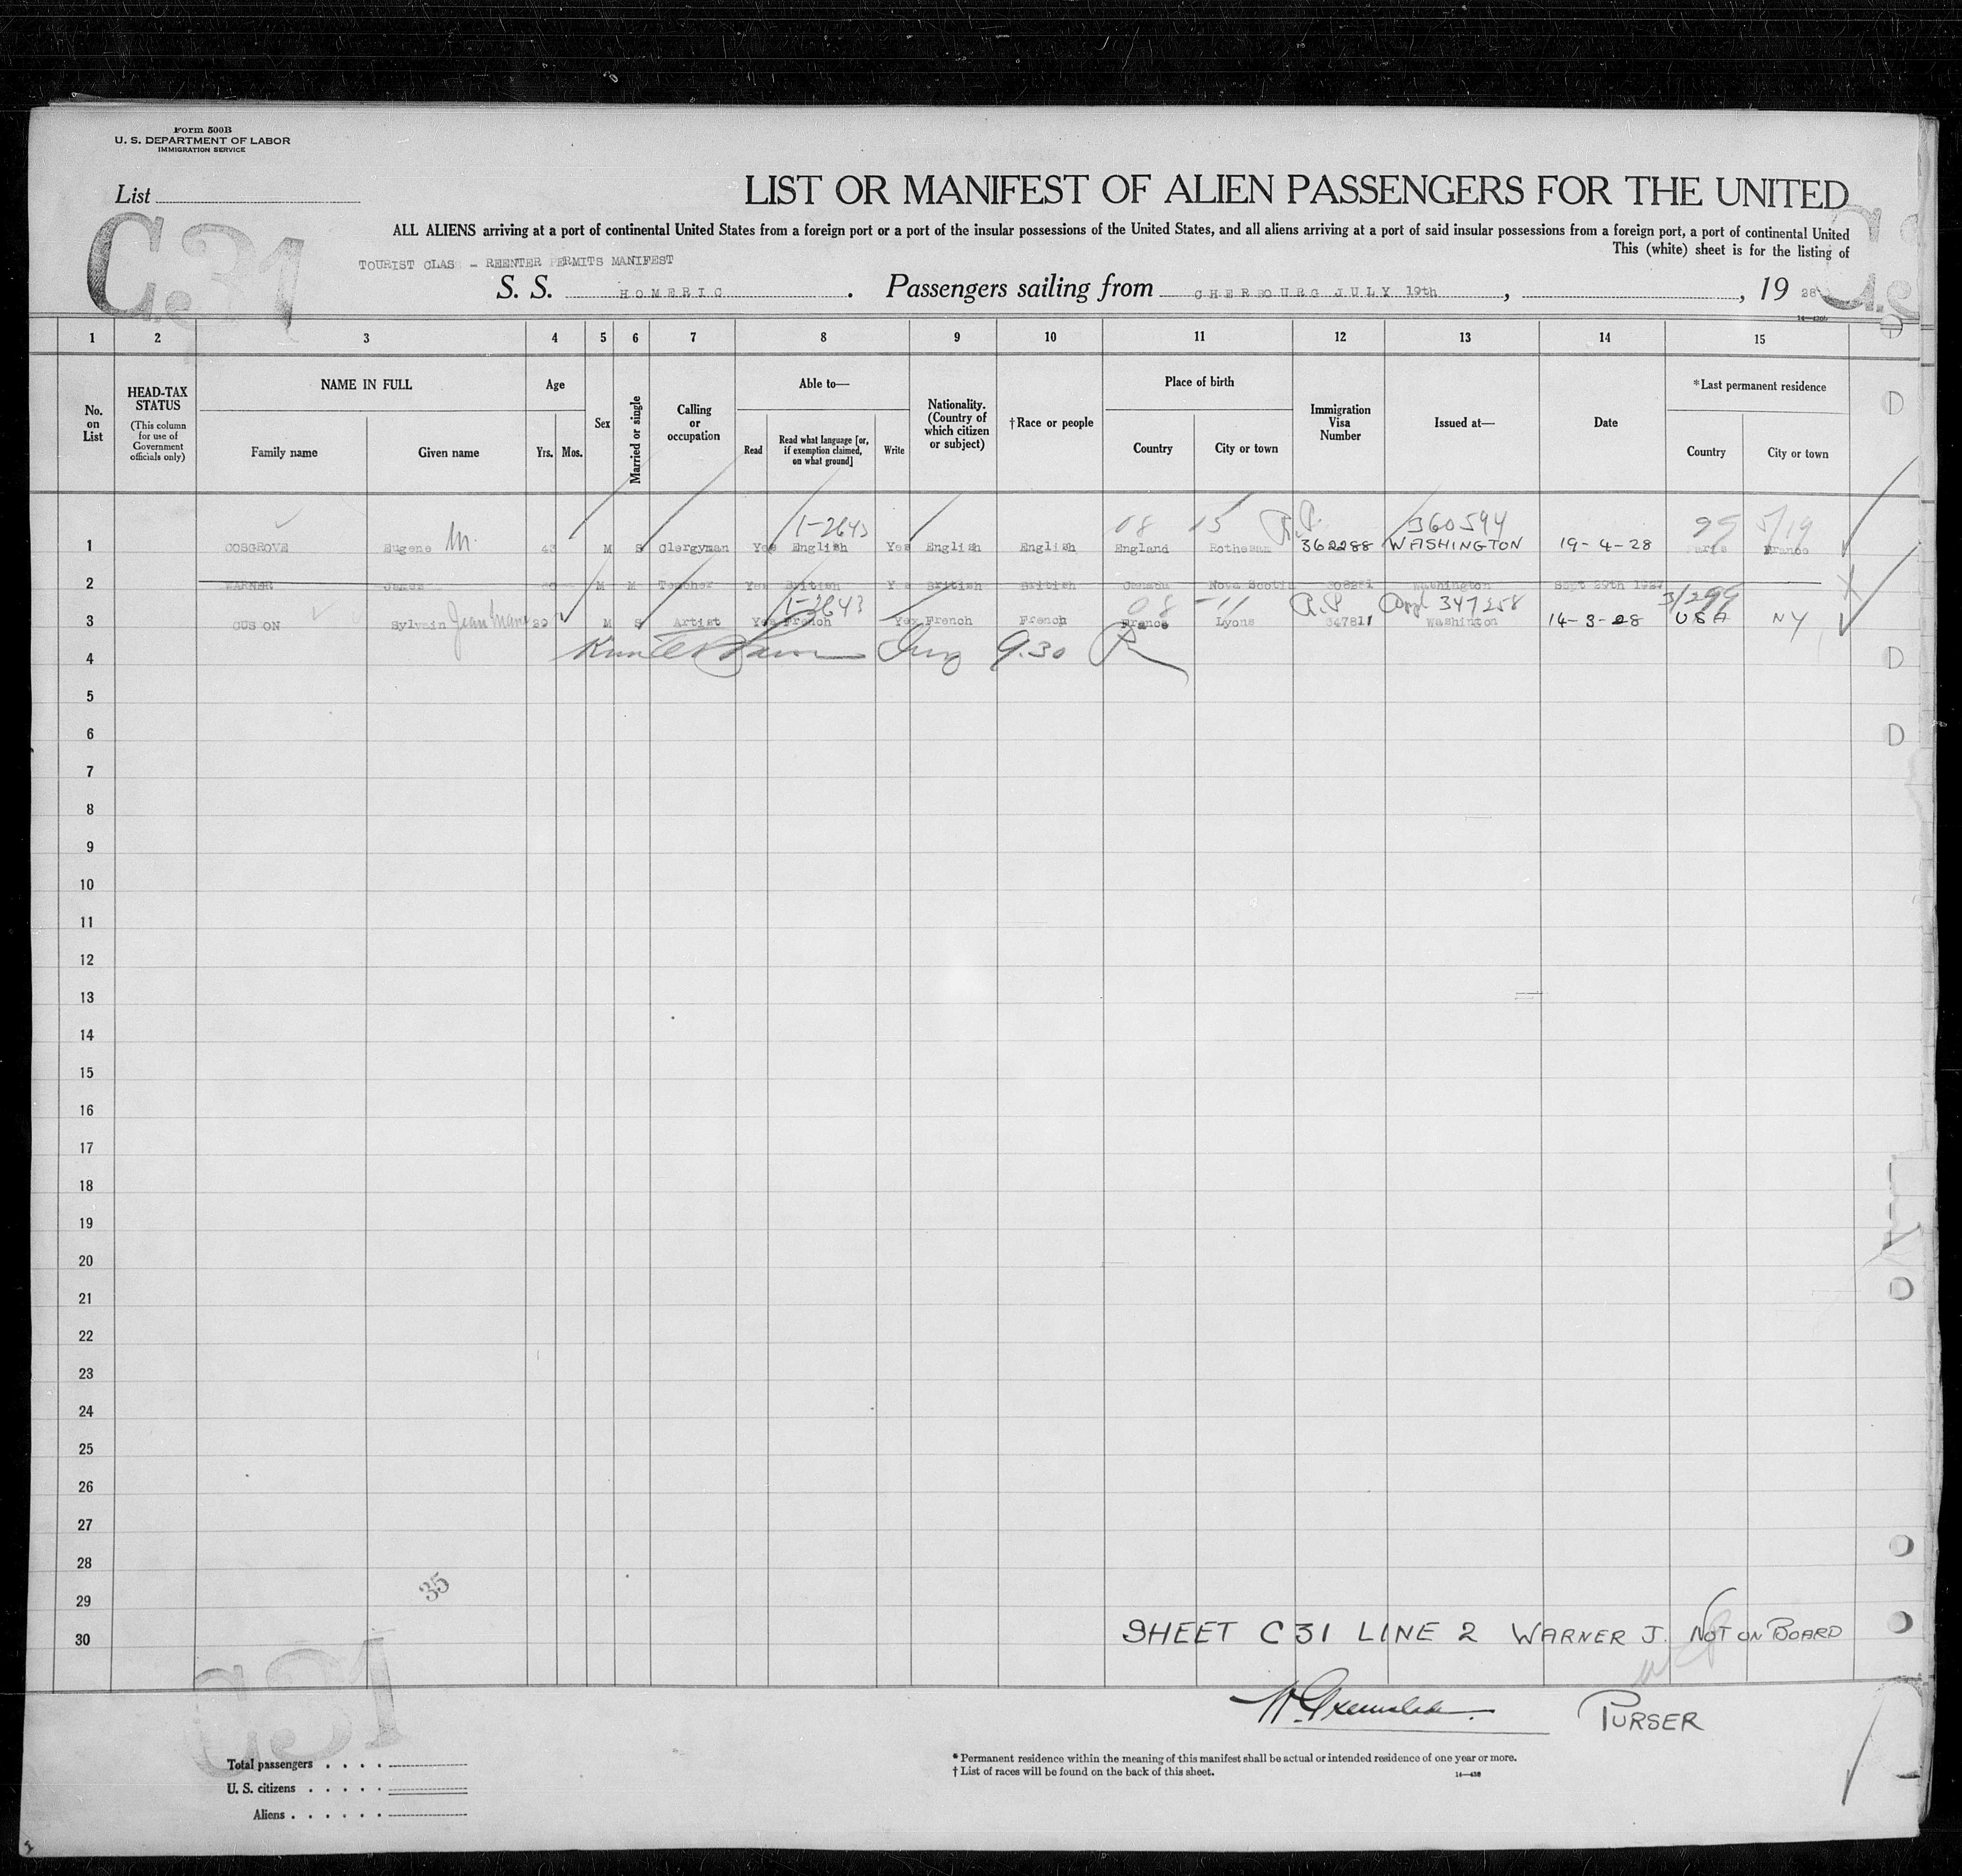 Form 500B
U. S. DEPARTMENT OF LABOR
IMMIGRATION SERVICE
List
C.31
LIST OR MANIFEST OF ALIEN PASSENGERS FOR THE UNITED
ALL ALIENS arriving at a port of continental United States from a foreign port or a port of the insular possessions of the United States, and all aliens arriving at a port of said insular possessions from a foreign port, a port of continental United
This (white) sheet is for the listing of
TOURIST CLAS - REENTER PERMITS MANIFEST
S. S. HOMERIC . Passengers sailing from CHERBOURG JULY 19th , , 19 28
1 2 3 4 5 6 7 8 9 10 11 12 13 14 15
No. on List
HEAD-TAX STATUS
(This column for use of Government officials only)
NAME IN FULL
Family name Given name
Age
Yrs. Mos.
Sex
Married or single
Calling or occupation
Able to—
Read Read what language [or, if exemption claimed, on what ground] Write
Nationality. (Country of which citizen or subject)
†Race or people
Place of birth
Country City or town
Immigration Visa Number
Issued at—
Date
*Last permanent residence
Country City or town
1-2643 08 15 R.P. 360594 99 5/19
1 COSGROVE Eugene M. 43 M S Clergyman Yes English Yes English English England Rothesam 362288 WASHINGTON 19-4-28 Paris France
2 WARNER James M M Teacher Yes British Yes British British Canada Nova Scotia Washington Sept 29th 1927
1-2643 08 -11 R.P 347258 3/299
3 CUSSON Sylvain Jean Marie 29 M S Artist Yes French Yes French French France Lyons 347811 Washington 14-3-28 USA NY
4 9.30
5
6
7
8
9
10
11
12
13
14
15
16
17
18
19
20
21
22
23
24
25
26
27
28
29
30
35
SHEET C 31 LINE 2 WARNER J. NOT ON BOARD
PURSER
C31
Total passengers
U. S. citizens
Aliens
* Permanent residence within the meaning of this manifest shall be actual or intended residence of one year or more.
† List of races will be found on the back of this sheet.
14—430